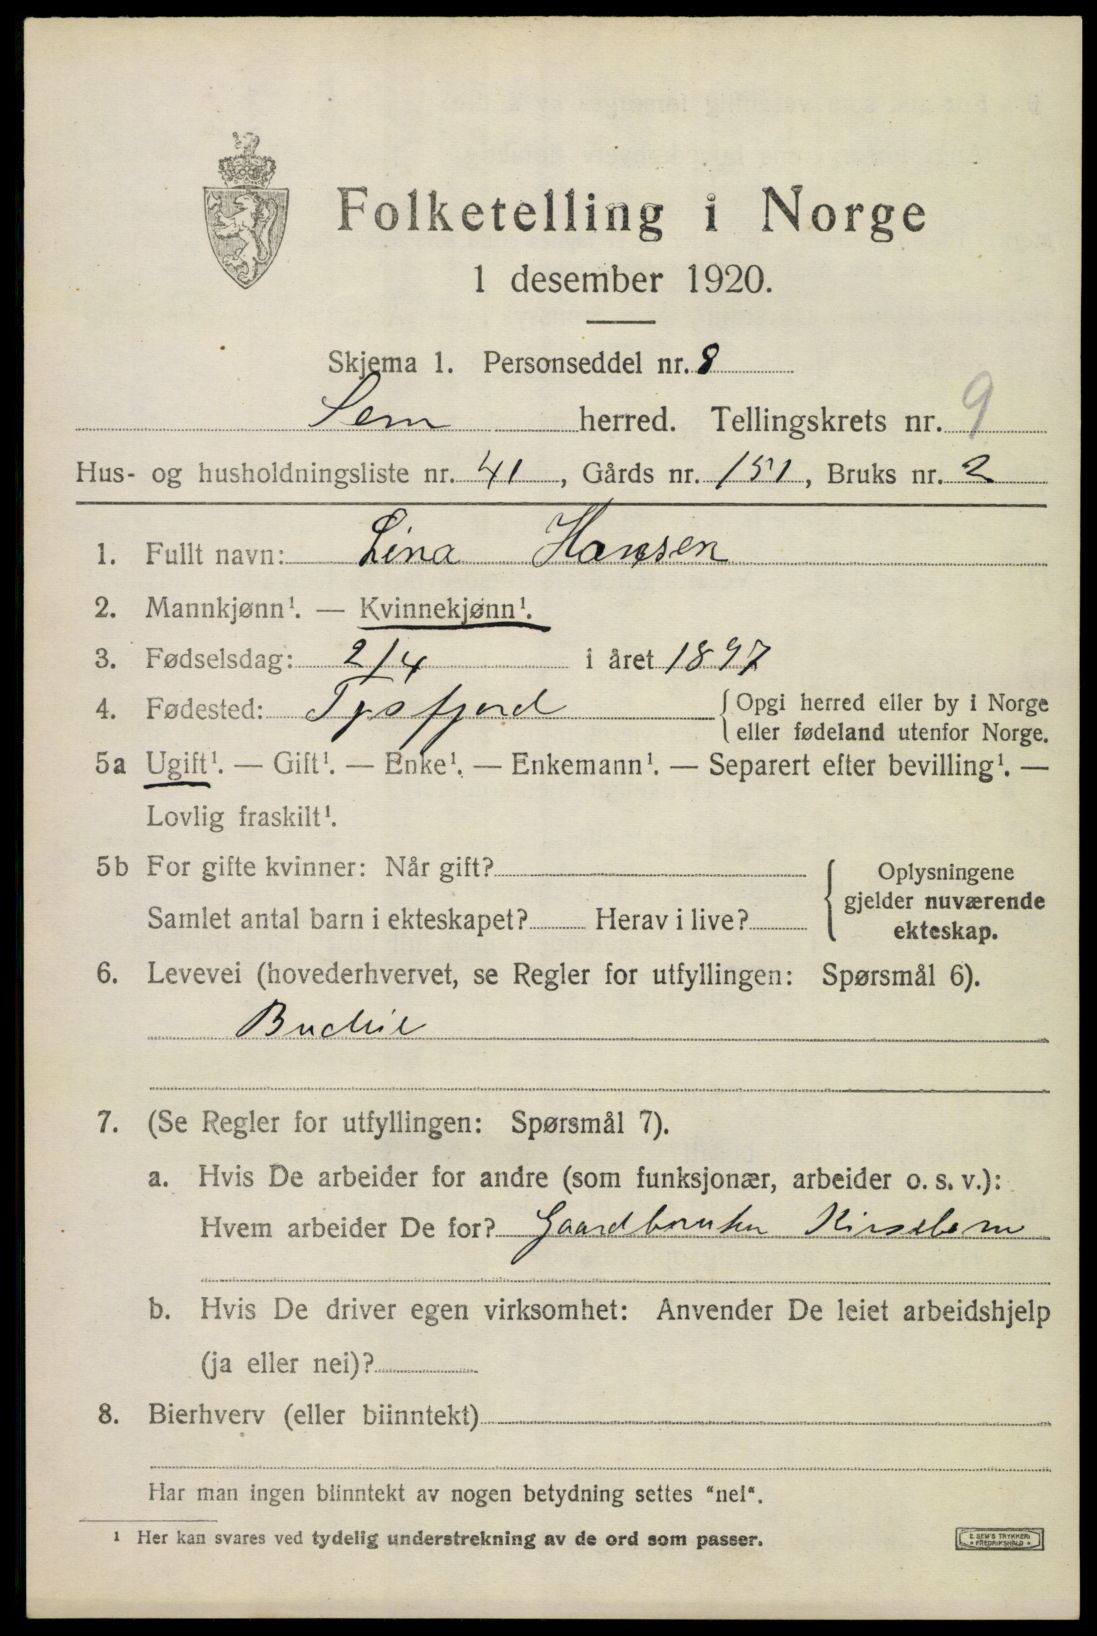 Folketelling i Norge
1 desember 1920.
Skjema 1. Personseddel nr. 8
Sem herred. Tellingskrets nr. 9
Hus- og husholdningsliste nr. 41, Gårds nr. 151, Bruks nr. 2
1. Fullt navn: Lina Hansen
2. Mannkjønn¹. — Kvinnekjønn¹.
3. Fødselsdag: 2/4 i året 1897
4. Fødested: Tysfjord {Opgi herred eller by i Norge
eller fødeland utenfor Norge.
5a Ugift¹. — Gift¹. — Enke¹. — Enkemann¹. — Separert efter bevilling¹. —
Lovlig fraskilt¹.
5b For gifte kvinner: Når gift?
Samlet antal barn i ekteskapet? Herav i live?
{Oplysningene
gjelder nuværende
ekteskap.
6. Levevei (hovederhvervet, se Regler for utfyllingen: Spørsmål 6).
Budeie
7. (Se Regler for utfyllingen: Spørsmål 7).
a. Hvis De arbeider for andre (som funksjonær, arbeider o. s. v.):
Hvem arbeider De for? Gaardbruker Kirsebom
b. Hvis De driver egen virksomhet: Anvender De leiet arbeidshjelp
(ja eller nei)?
8. Bierhverv (eller biinntekt)
Har man ingen biinntekt av nogen betydning settes "nei".
¹ Her kan svares ved tydelig understrekning av de ord som passer.
E. SEM'S TRYKKERI
• FREDRIKSHALD •